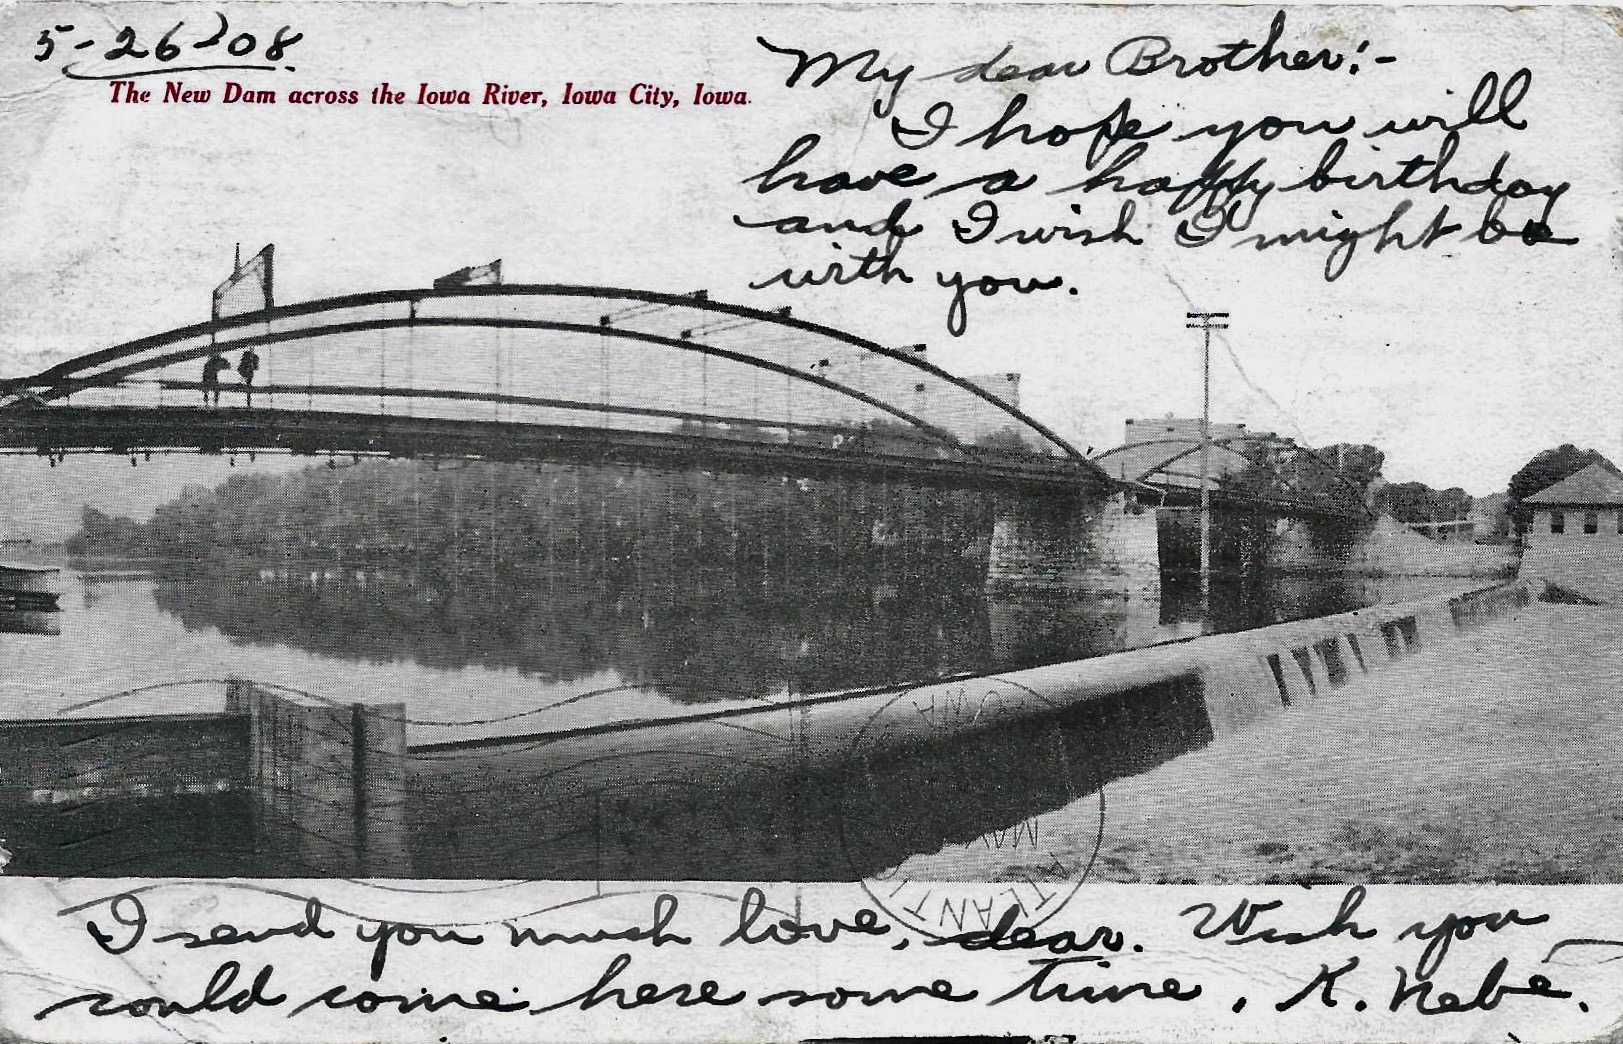 5-26-'08.
The New Dam across the Iowa River, Iowa City, Iowa.
My dear Brother:-
I hope you will
have a happy birthday
and I wish I might be
with you.
IOWA
MAY
ATLANT
I send you much love, dear. Wish you
could come here some time. K. Nebe.